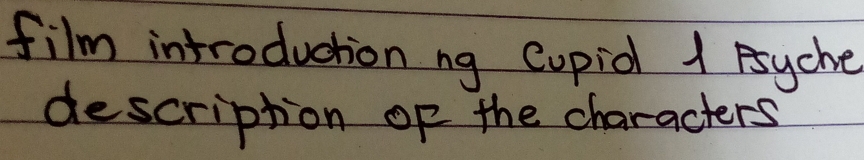 film introduction ng Cupid & Psyche
description of the characters